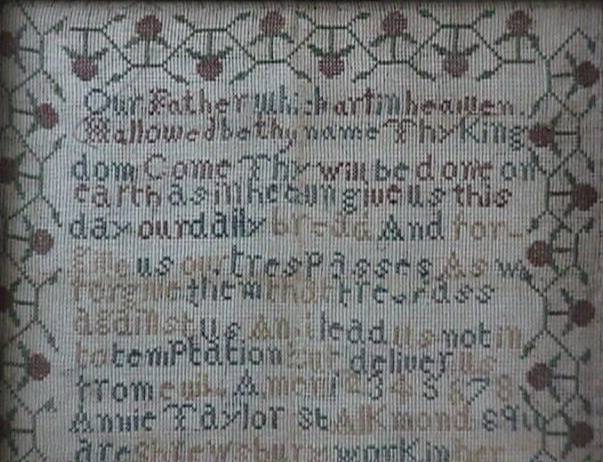 Our Father which art in heaven.
Hallowed be thy name Thy King
dom Come Thy will be done on
earth as in heaven give us this
day our daily bread And for-
give us our trespasses As we
forgive them that trespass
against us And lead us not in
to temptation but deliver us
from evil Amen 1 2 3 4 5 6 7 8
Annie Taylor St Alkmond
are Shrewsbury work in her